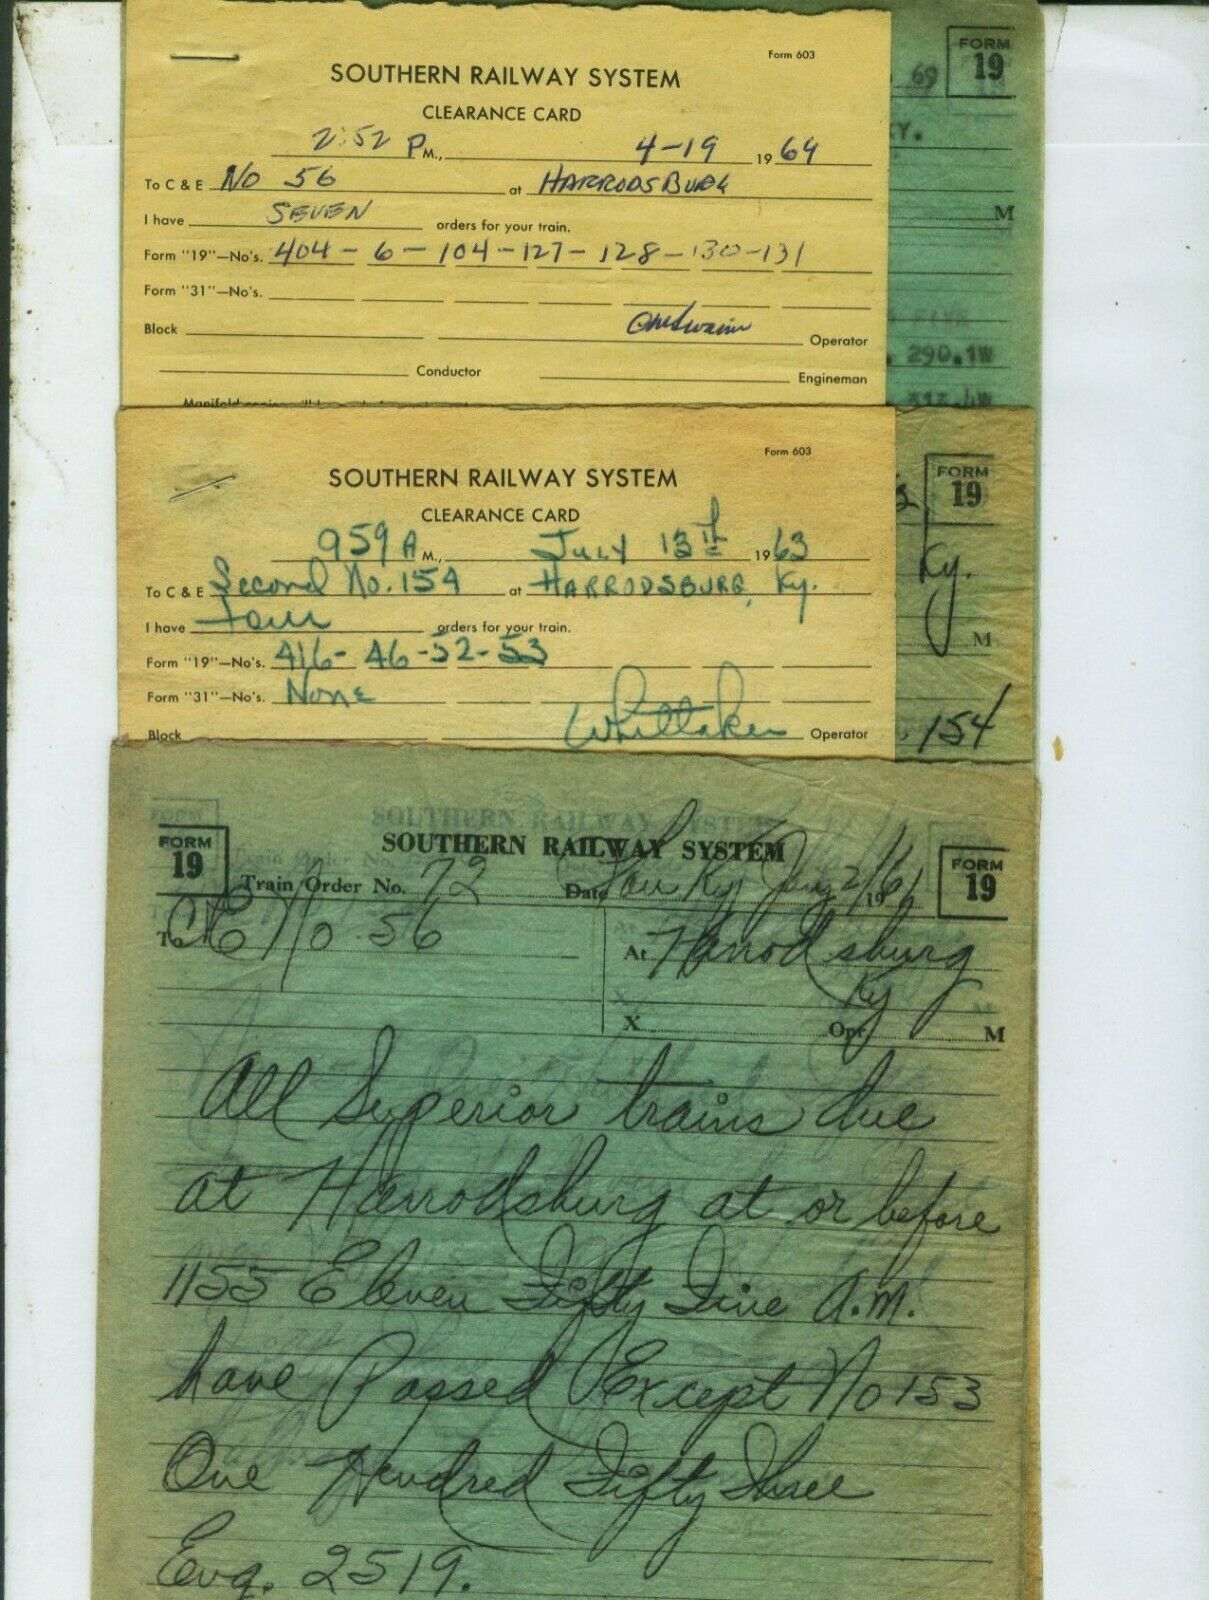 Form 603
SOUTHERN RAILWAY SYSTEM
CLEARANCE CARD
2:52 P M., 4-19 1969
To C & E No 56 at HARRODSBURG
I have SEVEN orders for your train.
Form "19"—No's. 404 - 6 - 104 - 127 - 128 - 130 - 131
Form "31"—No's.
Block Operator
Conductor Engineman
69 FORM 19
Y.
M
290.1W
Form 603
SOUTHERN RAILWAY SYSTEM
CLEARANCE CARD
959 A M., July 13th 1963
To C & E Second No. 154 at HARRODSBURG, Ky.
I have four orders for your train.
Form "19"—No's. 416 - 46 - 52 - 53
Form "31"—No's. None
Block Whittaker Operator
FORM 19
Ky.
M
154
FORM 19 SOUTHERN RAILWAY SYSTEM FORM 19
Train Order No. 72 Date Lou Ky 1961
To C&E No 56 At Harrodsburg
Ky
X Opr. M
All Superior trains due
at Harrodsburg at or before
1155 Eleven Fifty Five A.M.
have Passed Except No 153
One Hundred Fifty Three
Eng. 2519.